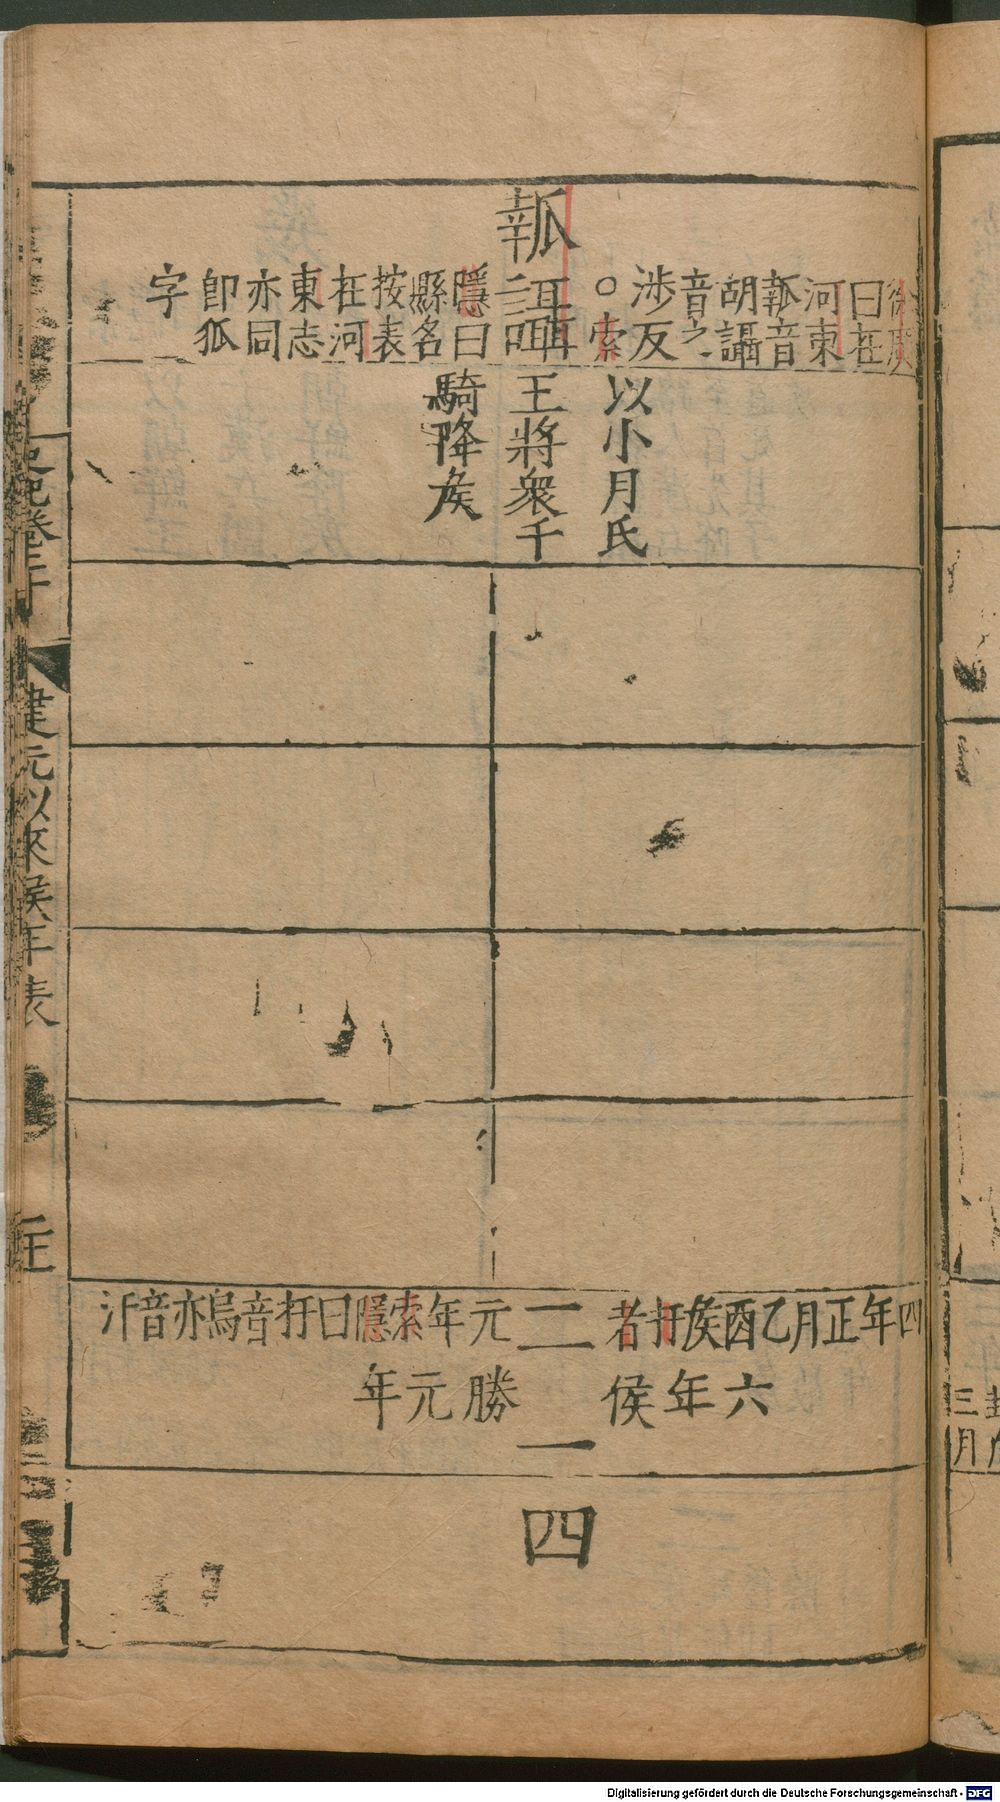 瓡讘
徐廣
曰在
河東
瓡音
胡讘
音之
涉反
○索
隱曰
縣名
按表
在河
東志
亦同
卽狐
字
以小月氏
王將衆千
騎降侯
二
四年正月乙酉侯扜者
元年索隱曰扜音烏亦音汙
一
六年侯
勝元年
四
史記卷二十
建元以來侯年表
三月
Digitalisierung gefördert durch die Deutsche Forschungsgemeinschaft - DFG